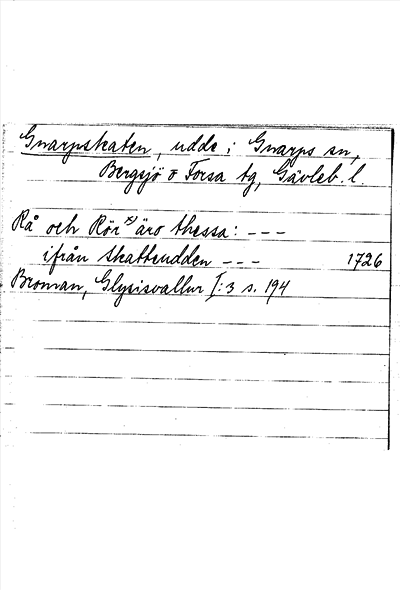 Gnarpskaten, udde i Gnarps sn,
Bergsjö o Forsa tg, Gävleb. l.
Rå och Rör x) äro thessa: ---
ifrån skatteudden ---  1726
Broman, Glysisvallur I:3 s. 194